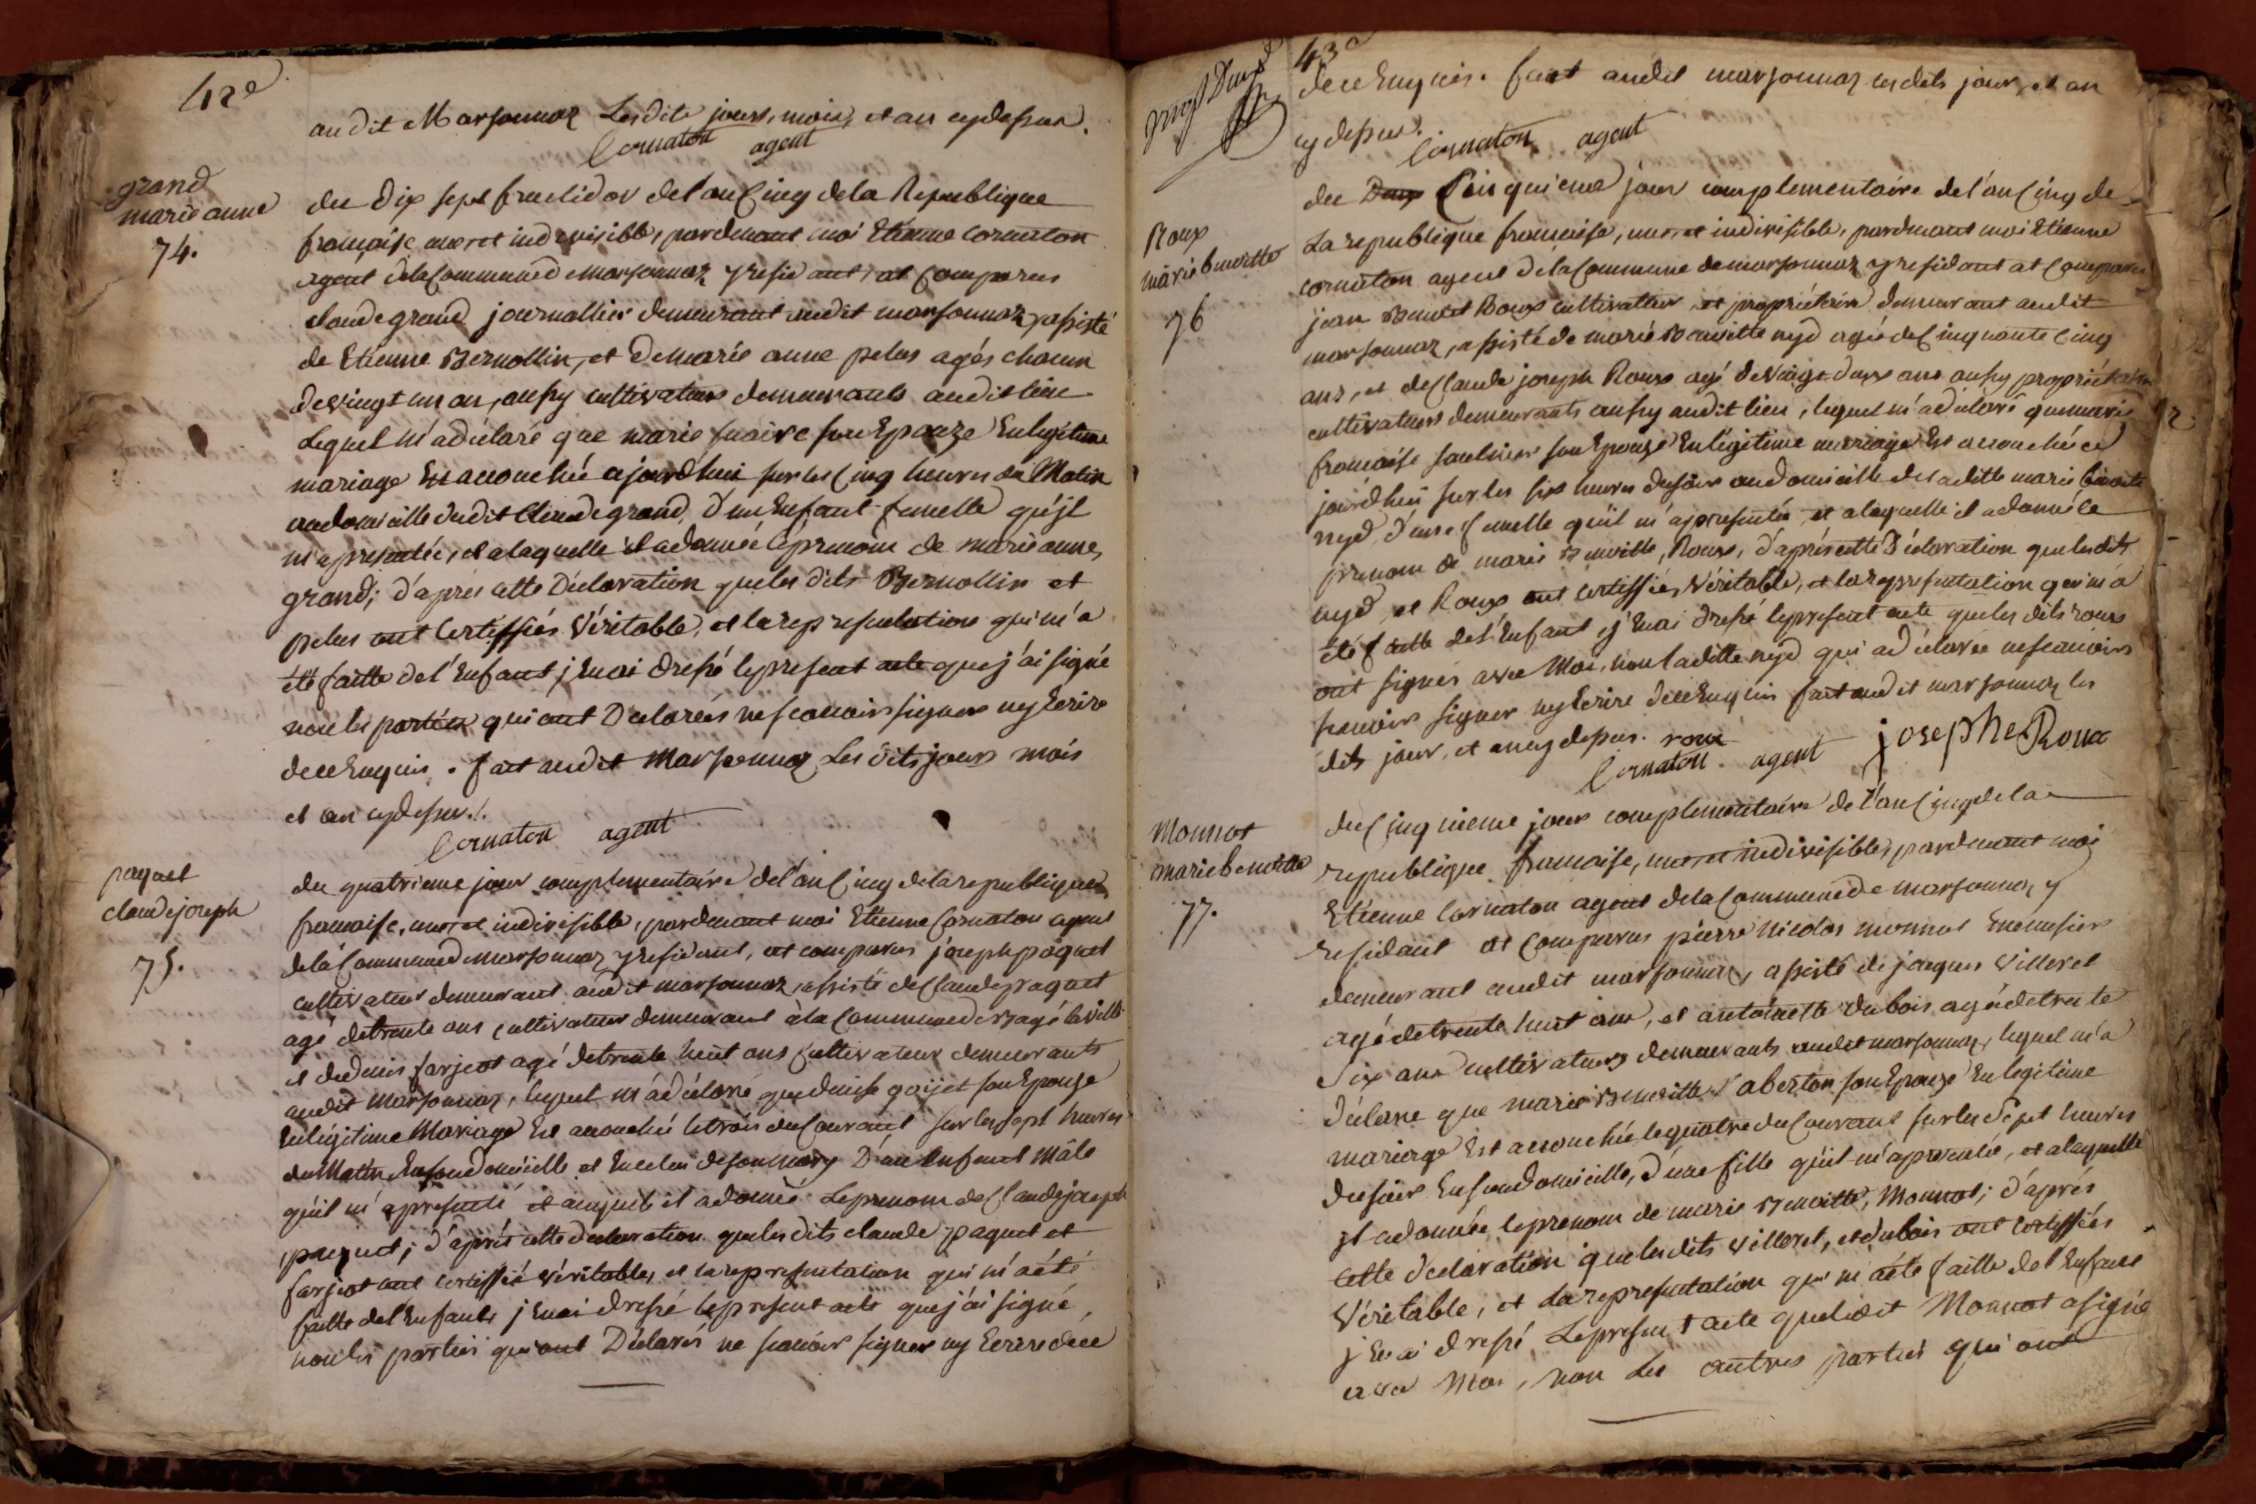 42e
audit Marsonnaz Lesdits jours, mois, et an cydessus.
Cornaton agent
grand
marie anne
74.
du dix sept fructidor de l'an Cinq dela Republique
françoise une et indivisible, pardevant moi Etienne cornaton
agent dela Commune de marsonnaz y residant, at Comparus
claude grand journallier demeurant audit marsonnaz, assisté
de Etienne Bernollin, et de marie anne pelus agés chacun
de vingt un an, aussy cultivateurs demeurants audit lieu
Lequel m'a déclaré que marie son Epouze En legitime
mariage Est accouchée ajourd'huei sur les Cinq heures du Matin
audomicille dudit Claude grand, d'un Enfant femelle qu'jl
m'a presentée, et alaquelle il adonnée leprenom de marie anne,
grand; d'après cette Déclaration queles dits Bernollin et
pelus ont Certiffiés Véritable, et la representation qui m'a
été faitte de l'Enfant j'Enai dressé lepresent acte que j'ai signé
non les parties qui ont Déclarées ne scavoir signer ny Ecrire
dece Enquis. fait audit Marsonnaz Les dits jours mois
et an cydessus./.
Cornaton agent
paquet
claude joseph
75.
du quatrieme jour complementaire de l'an Cinq dela republique
francaise, une et indivisible, pardevant moi Etienne Cornaton agent
dela Commune de marsonnaz y residant, at comparus joseph paquet
cultivateur demeurant audit marsonnaz, assisté de Claude paquet
agé detrente ans cultivateur demeurant àla Commune de Bagé la ville
et de denis farjeot agé detrente huit ans Cultivateur demeurants
audit Marsonnaz, lequel m'a déclaré que denise goÿet son Epouze
En légitime Mariage Est accouchée letrois du Courant sur les sept heures
du Matin En son domicille et En celui de son mary D'un Enfant Mâle
qu'il m'a presenté et auquel il adonné Leprenom de Claude joseph
paquet; d'après cette declaration queles dits claude paquet et
farjeot ont certiffié véritable, et la representation qui m'a été
faitte de l'Enfant, j'Enai dressé le present acte que j'ai signé,
non les parties qui ont Déclarés ne scavoir signer ny Ecrire dece
43e
dece Enquis. fait audit marsonnaz lesdits jour, et an
cy dessus.
Cornaton agent
Roux
marie benoitte
76
du Deux Cinquieme jour complementaire de l'an Cinq de
La republique francaise, une et indivisible, pardevant moi Etienne
cornaton agent dela Commune de marsonnaz y residant at Comparus
jean Benoit Roux cultivateur et propriétaire demeurant audit
marsonnaz, assisté de marie Benoitte nyd agée de Cinquante Cinq
ans, et de Claude joseph Roux agé de vingt deux ans aussy propriétaire
cultivateurs demeurants aussy audit lieu, lequel m'a déclaré que marie
francoise saulnier son Epouze En légitime mariage Est accouchée ce
jourd'hui sur les six heures du soir audomicille de laditte marie benoite
nyd, d'une femelle qu'il m'a presentée et alaquelle il adonné le
prenom de marie Benoitte, Roux, d'après cette Déclaration que lesdits
nyd, et Roux ont certiffiés Véritable, et la representation qui m'a
été faitte de l'Enfant, j'Enai dressé lepresent acte queles dits roux
ont signés avec Moi, non laditte nyd qui a déclarée ne scavoir
scavoir signer ny Ecrire dece Enquis fait audit marsonnaz les
dits jour, et an cy dessus. roux
Cornaton agent josephe Roux
Monnot
marie benoitte
77.
du Cinquieme jour complementaire de l'an Cinq dela
republique francaise, une et indivisible, pardevant moi
Etienne Cornaton agent dela Commune de marsonnaz y
residant at Comparus pierre nicolas monnot menuisier
demeurant audit marsonnaz, assisté de jacques Villeret
agé detrente huit ans, et antoinette dubois agée de trente
six ans cultivateurs demeurants audit marsonnaz, lequel m'a
déclaré que marie Benoitte son Epouze En legitime
mariage Est accouchée le quatre du Courant sur les sept heures
du soir En son domicille, d'une fille qu'il m'a presentée, et alaquelle
jl adonnée leprenom de marie Benoitte, Monnot; d'après
cette déclaration queles dits Villeret, et dubois ont certiffiés
Véritable, et la representation qui m'a été faitte de l'Enfant
j'En ai dressé Lepresent acte queledit Monnot a signé
avec Moi, non Les autres parties qui ont